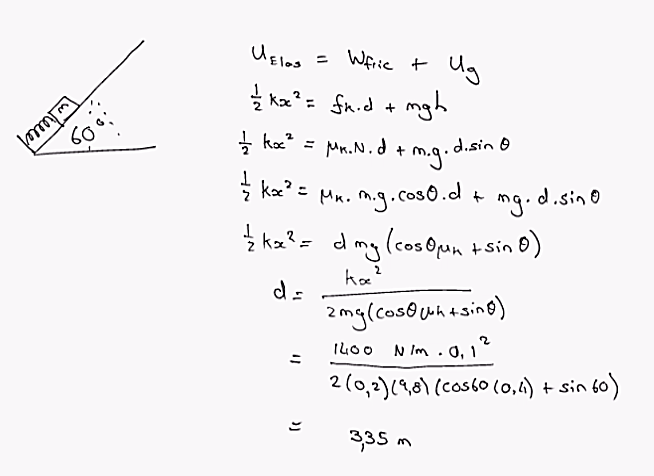 m
60°
U Elas = Wfric + Ug
1/2 kx² = fk.d + mgh
1/2 kx² = μk.N.d + m.g.d.sin θ
1/2 kx² = μk.m.g.cosθ.d + mg.d.sinθ
1/2 kx² = dmg(cosθμk + sinθ)
d = kx² / 2mg(cosθμk+sinθ)
= 1400 N/m . 0,1² / 2(0,2)(9,8)(cos60(0,4) + sin60)
= 3,35 m